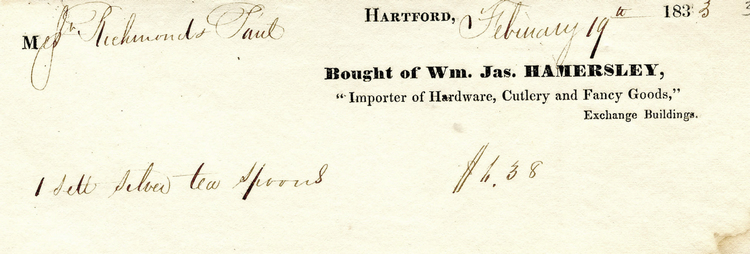 HARTFORD, February 19th 1833
M
Bought of Wm. Jas. HAMERSLEY,
"Importer of Hardware, Cutlery and Fancy Goods,"
Exchange Buildings.
1 sett silver tea spoons $6.38